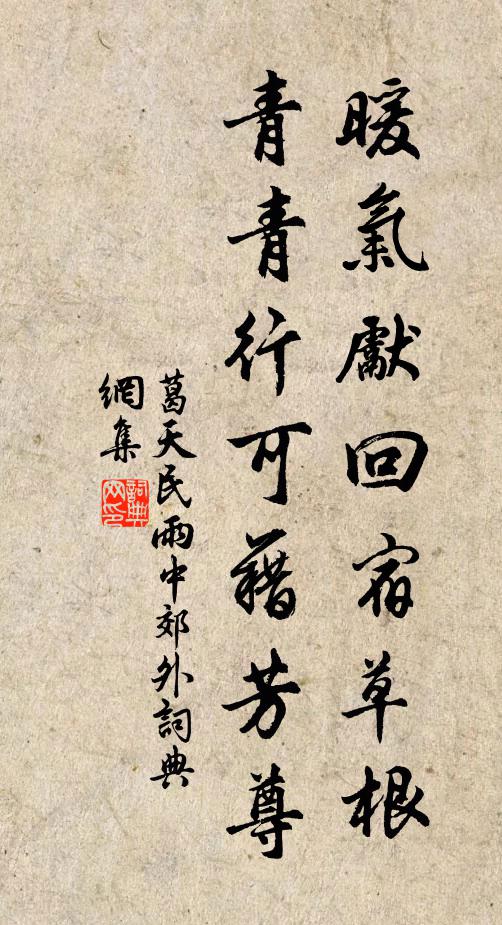 暖氣獻回宿草根
青青行可藉芳尊
葛天民雨中郊外詞典
網集
詞典
网印